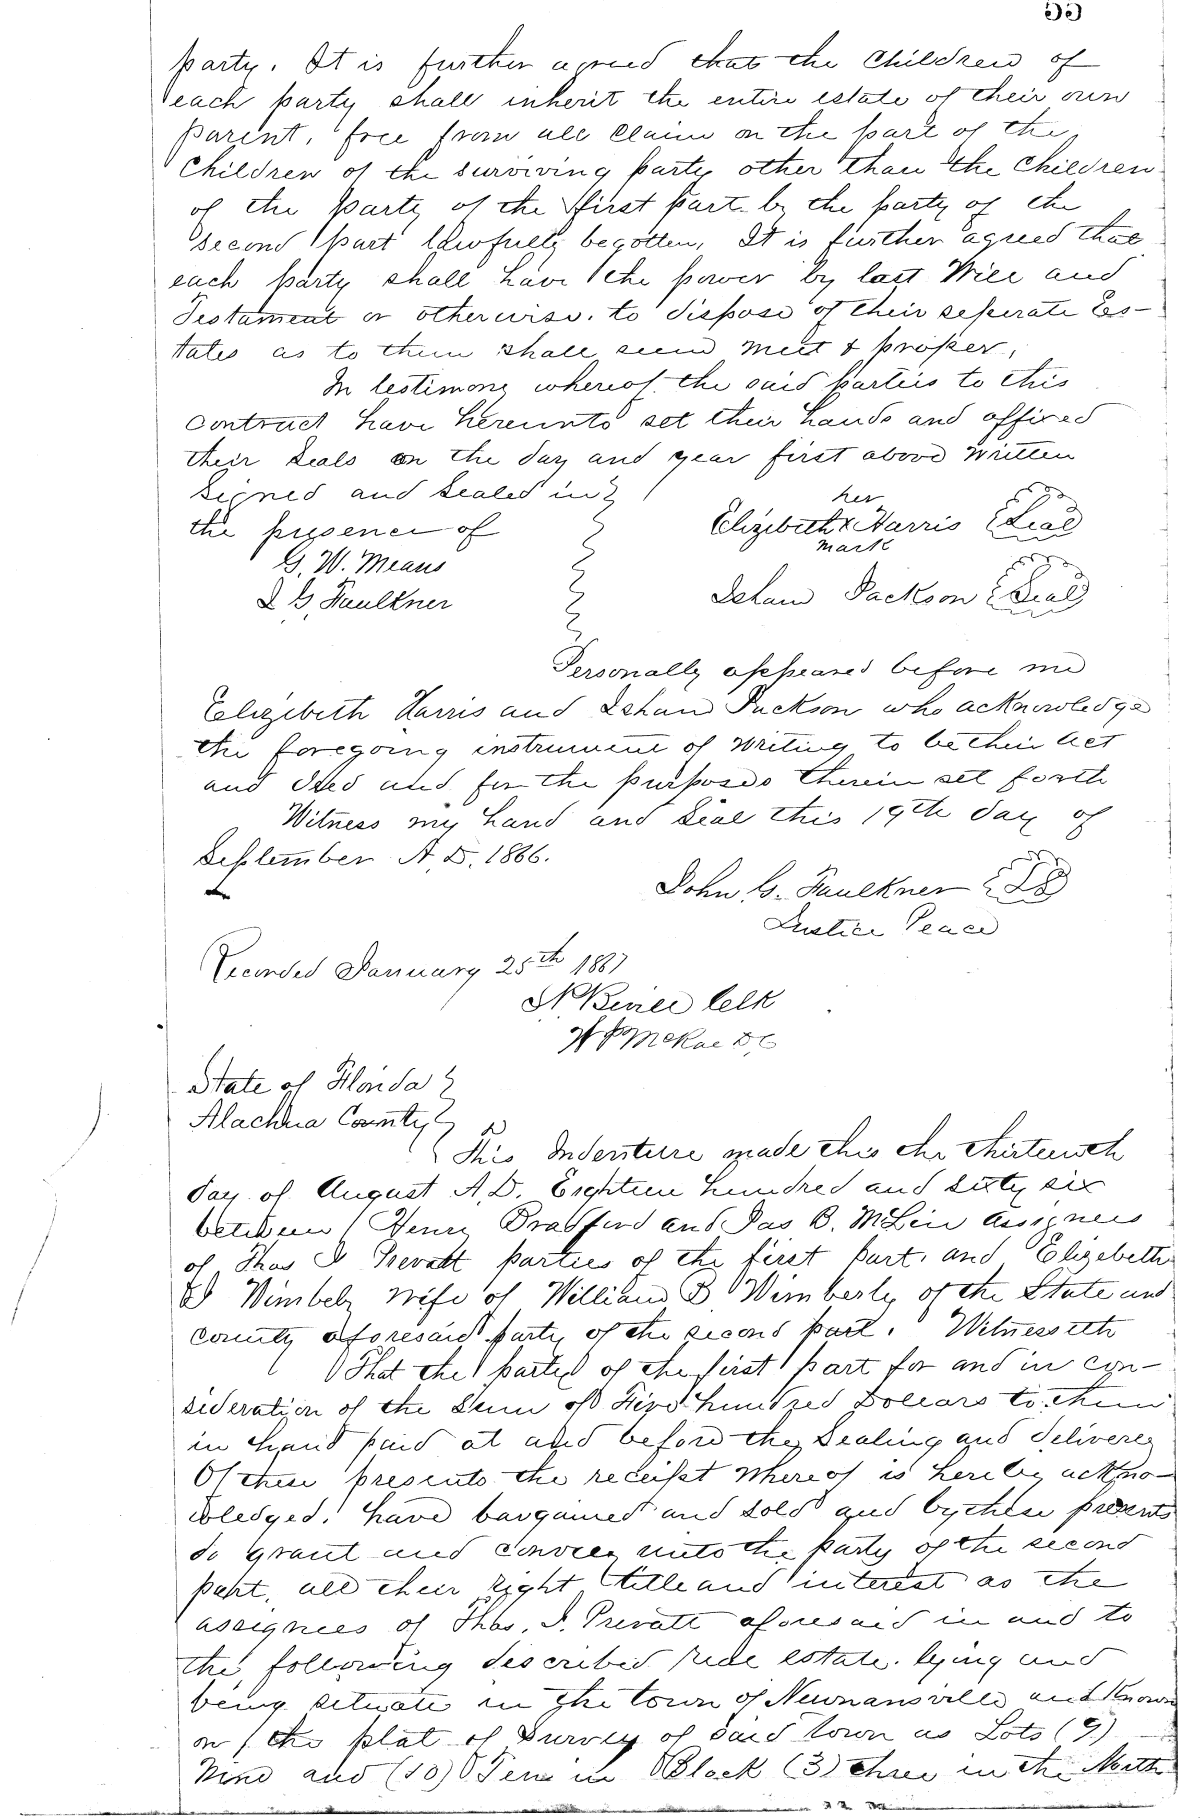 55
party. It is further agreed that the Children of
each party shall inherit the entire estate of their own
parent, free from all Claim on the part of the
Children of the surviving party other than the Children
of the party of the first part by the party of the
Second part lawfully begotten, It is further agreed that
each party shall have the power by last Will and
Testament or otherwise. to dispose of their seperate Es-
tates as to them shall seem meet & proper,
In testimony whereof the said parties to this
contract have hereunto set their hands and affixed
their Seals on the day and year first above written
Signed and Sealed in
the presence of
G. W. Means
J G. Faulkner
her
Elizibeth x Harris Seal
mark
Isham Jackson Seal
Personally appeared before me
Elizibeth Harris and Isham Jackson who acknowledge
the foregoing instrument of writing to be their act
and deed and for the purposes therein set forth
Witness my hand and Seal this 19th day of
September A.D. 1866.
John G. Faulkner LS
Justice Peace
Recorded January 25th 1867
Clk
McRae D C
State of Florida
Alachua County
This Indenture made this the thirteenth
day of August A.D. Eighteen hundred and sixty six
between Henry Bradford and Jas B. McLin assignees
of Thos J Prevatt parties of the first part. and Elizebeth
Wimbely wife of William B Wimberly of the State and
county aforesaid party of the second part. Witnesseth
That the parties of the first part for and in con-
sideration of the Sum of Five hundred Dollars to them
in hand paid at and before the Sealing and delivery
Of these presents the receipt whereof is hereby ackno-
wledged. have bargained and sold and by these presents
do grant and convey unto the party of the second
part. all their right title and interest as the
assignees of Thos. J. Prevatt aforesaid in and to
the following described real estate. lying and
being situate in the town of Newnansville and Known
on the plat of Survey of said town as Lots (9)
Nine and (10) Ten in Block (3) three in the North